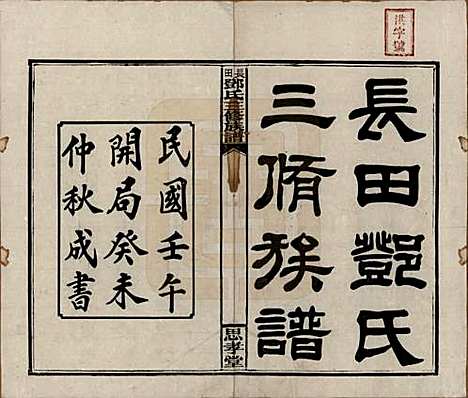 洪字號
長田鄧氏
三脩族譜
長田鄧氏三修族譜
思孝堂
民國壬午
開局癸未
仲秋成書